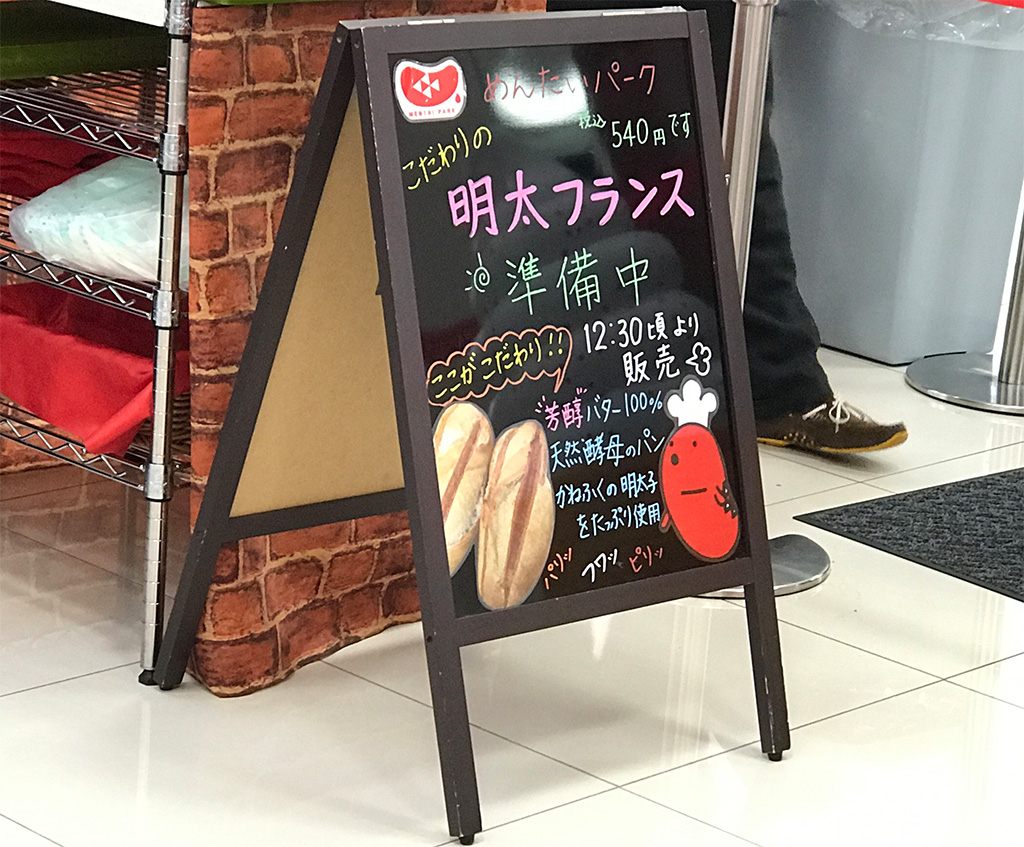 めんたいパーク
MENTAI PARK
税込 540円です
こだわりの
明太フランス
準備中
12:30頃より
販売
ここがこだわり!!
芳醇バター100%
天然酵母のパン
かねふくの明太子
をたっぷり使用
パリッ フワッ ピリッ